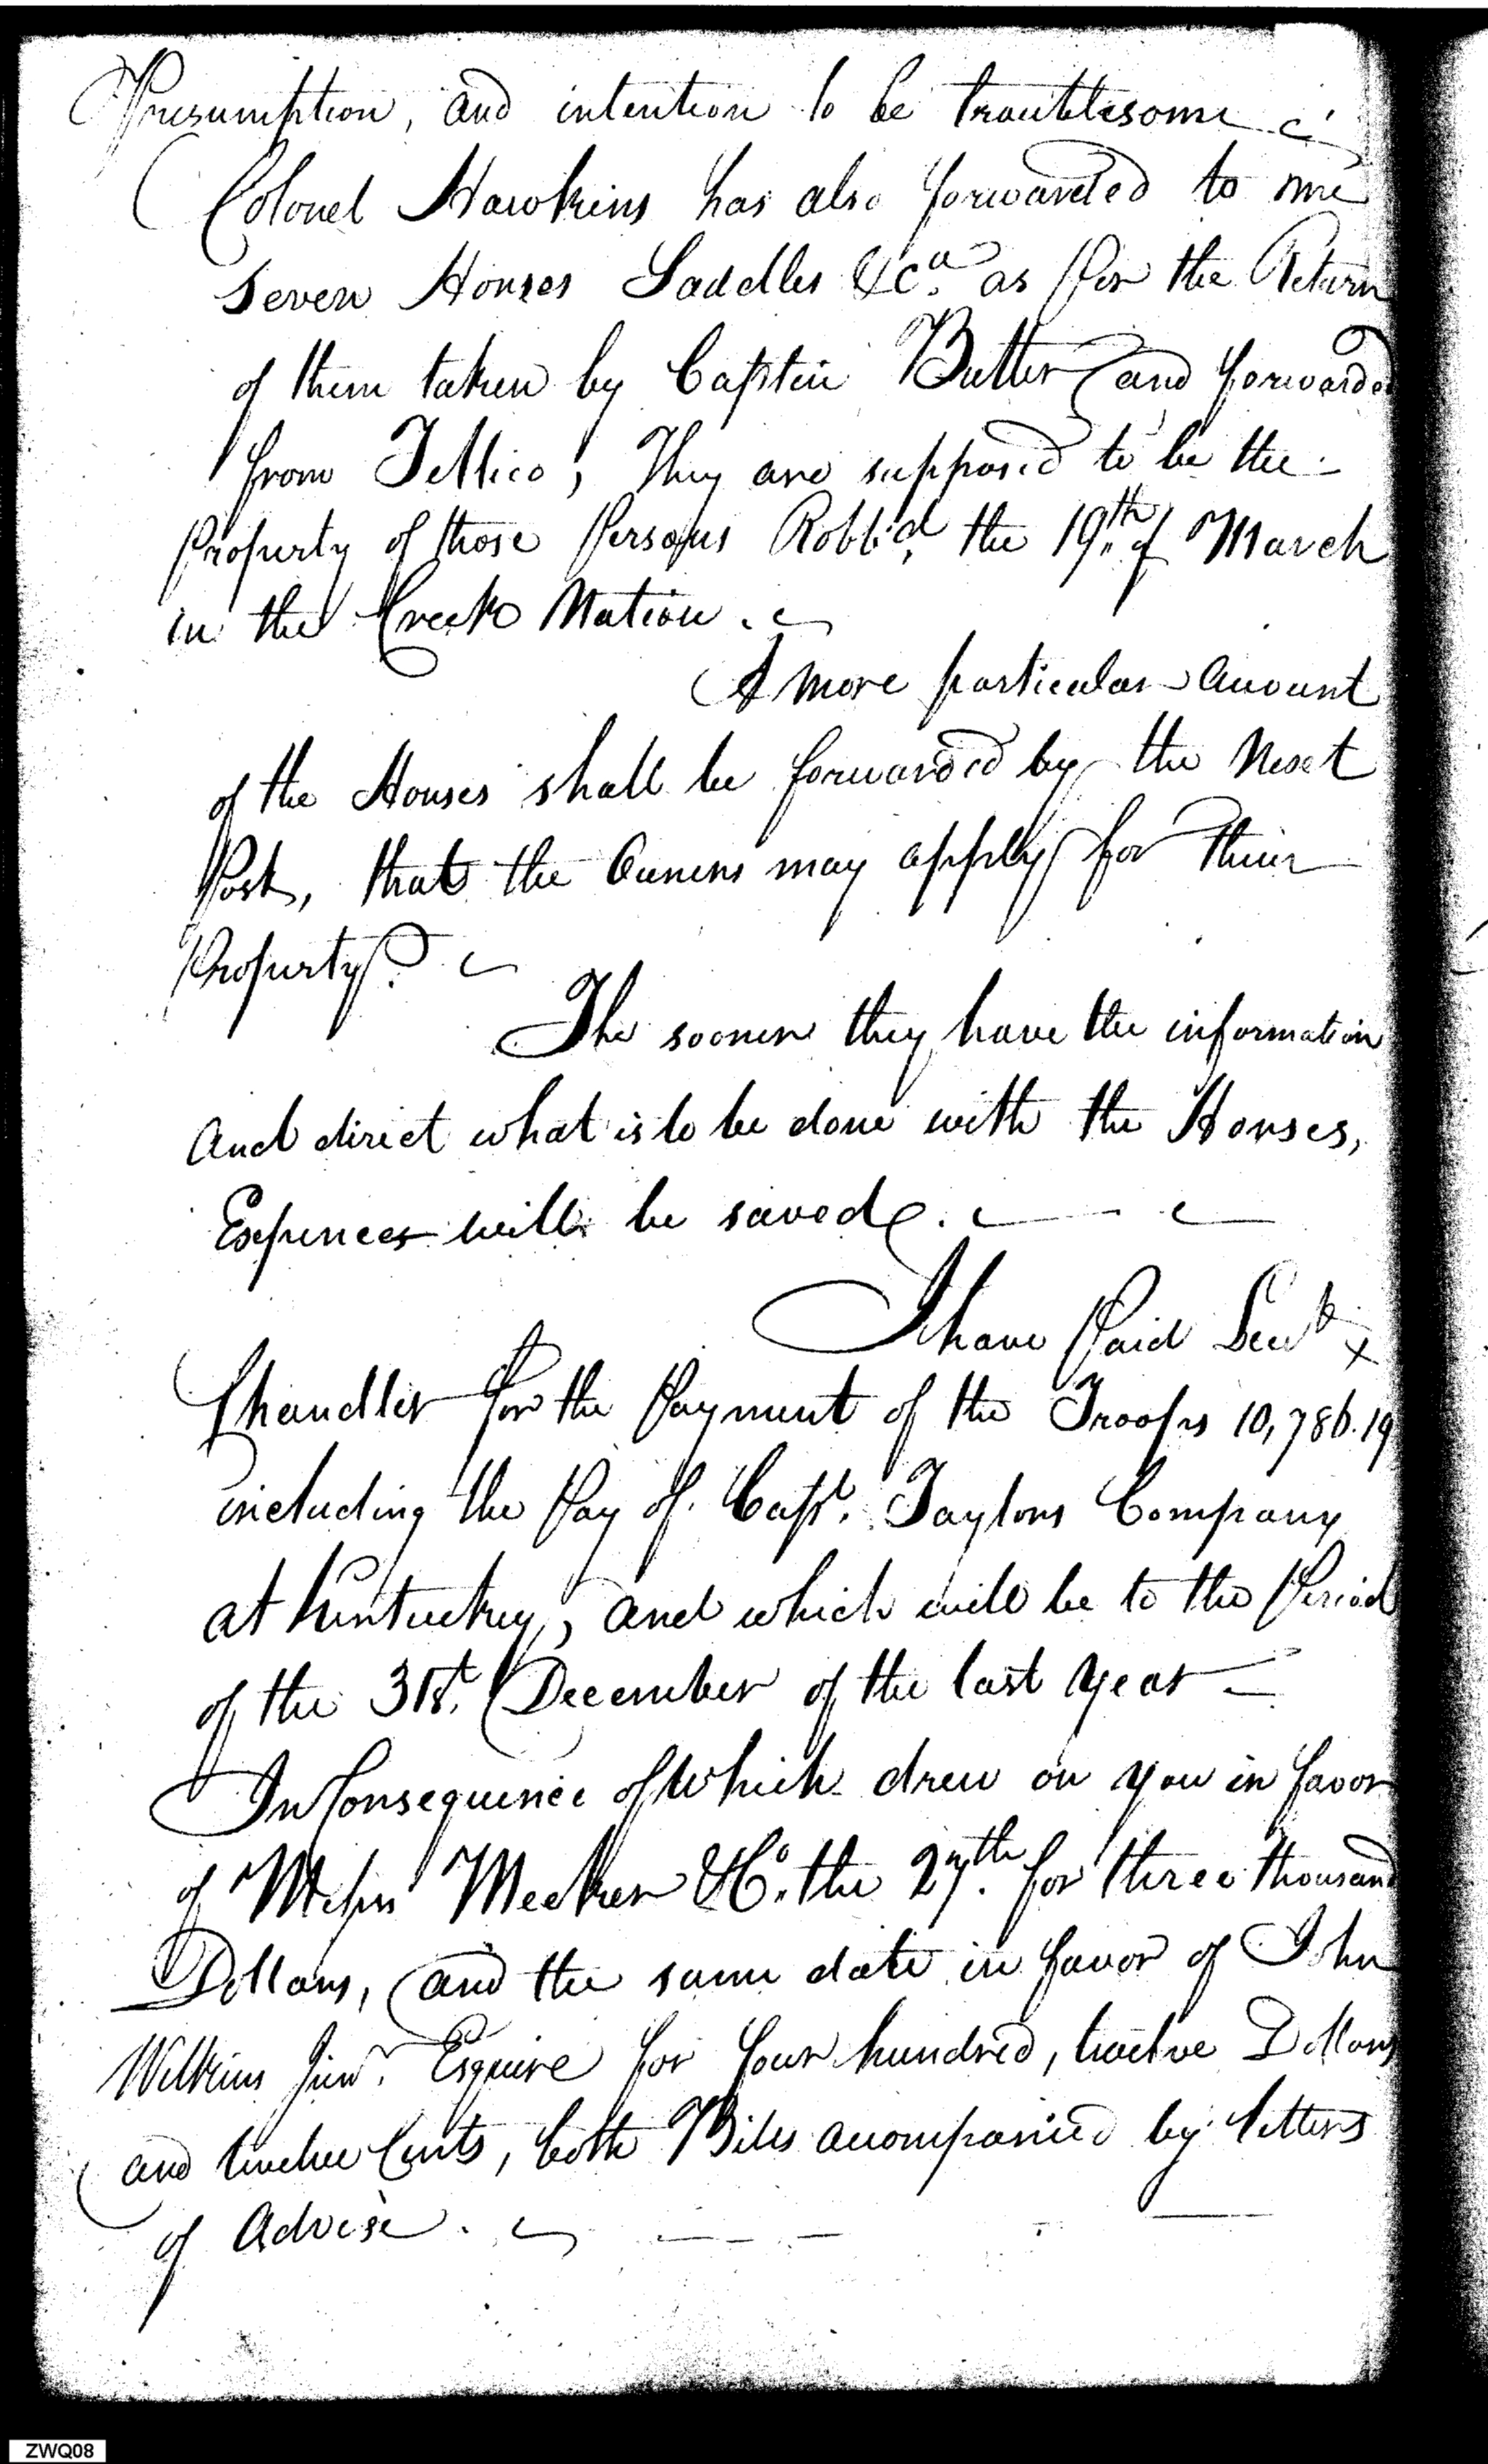 Presumption, and intention to be troublesome
Colonel Hawkins has also forwarded to me
Seven Horses Saddles &ca. as per the Return
of them taken by Captin Butler and forwarded
from Tellico; They are supposed to be the
Property of those Persons Robb'd, the 19th. of March
in the Creek Nation.
A more particular account
of the Horses shall be forwarded by the Next
Post, that the Owners may apply for their
Property.
The sooner they have the information
and direct what is to be done with the Horses,
Expences will be saved.
I have Paid Leut. x
Chandler for the Payment of the Troops 10,786.19
including the Pay of Capt. Taylors Company
at Kentuckey, and which will be to the Period
of the 31st. December of the last year
In Consequence of which drew on you in favor
of Messrs Meeker & Co. the 27th. for three thousand
Dollars, and the same date in favor of John
Wilkins Junr. Esquire for four hundred, twelve Dollars
and twelve Cents, both Bills accompanied by letters
of Advise.
ZWQ08